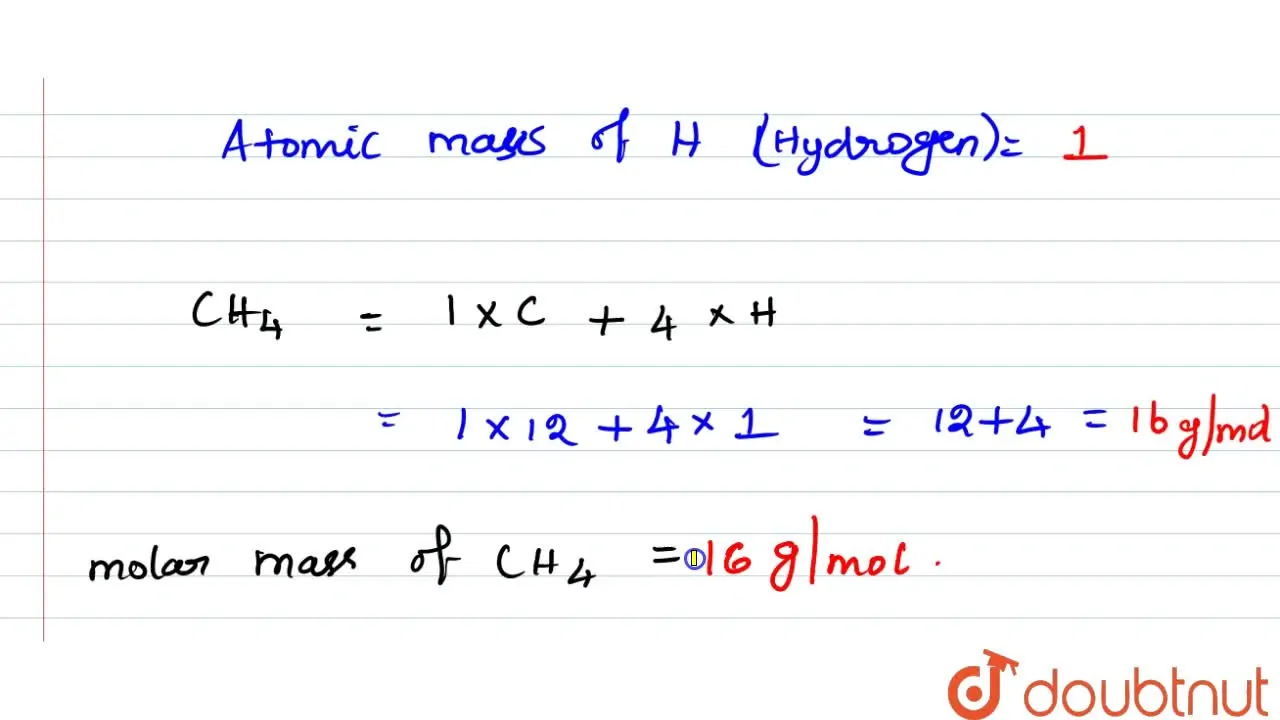 Atomic mass of H (Hydrogen)= 1
CH4 = 1 × C + 4 × H
= 1 × 12 + 4 × 1 = 12+4 = 16 g/mol
molar mass of CH4 = 16 g/mol.
doubtnut